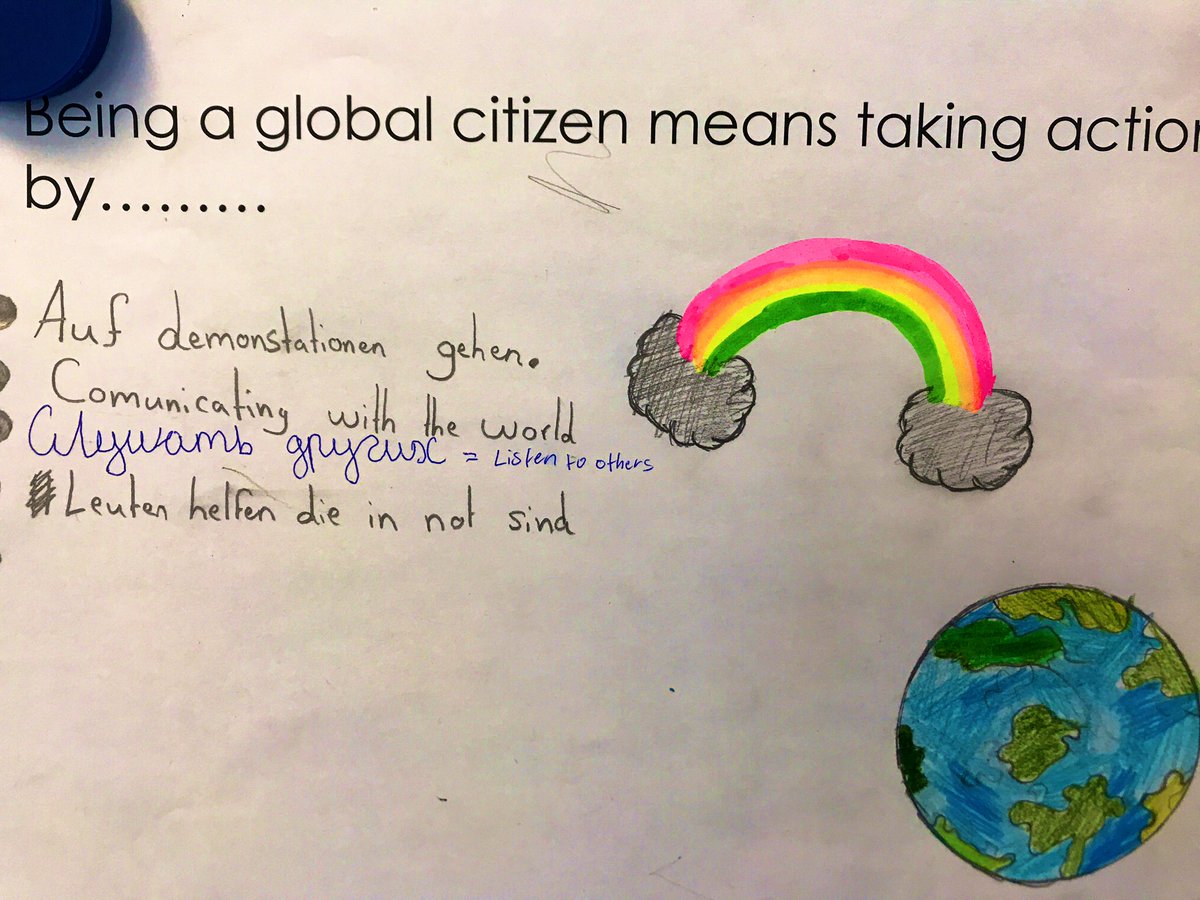 Being a global citizen means taking action
by.........
Auf demonstationen gehen.
Comunicating with the world
Слушать других = Listen to others
Leuten helfen die in not sind